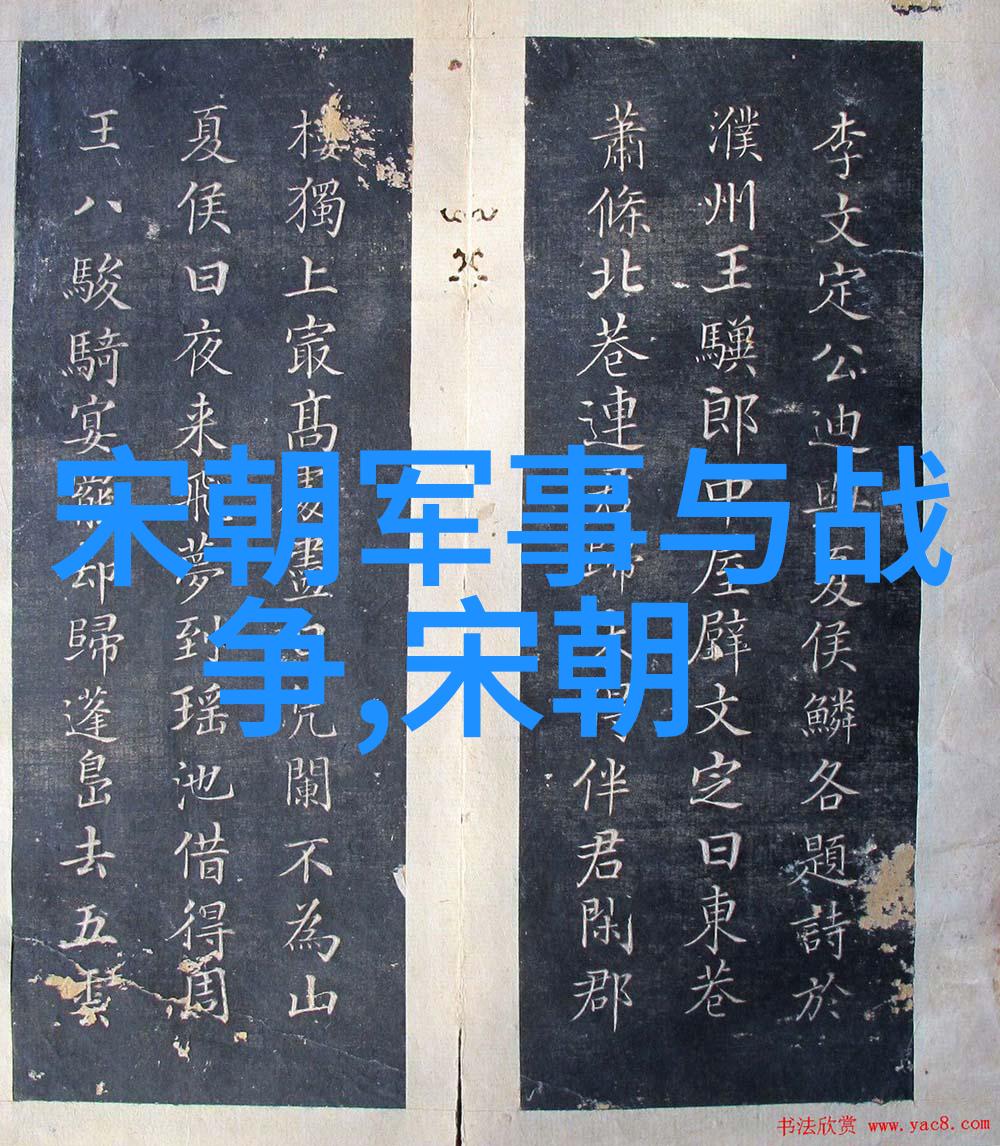 李文定公迪與夏侯鱗各題詩於
濮州王驥郎中屋壁文定曰東巷
蕭條北巷連伴君閑郡
樓獨上㝡高處盡闌不為山
夏侯曰夜来飛夢到瑶池借得周
王八駿騎宴罷却歸蓬島去五雲
宋朝军事与战
争,宋朝
书法欣赏 www.yac8.com